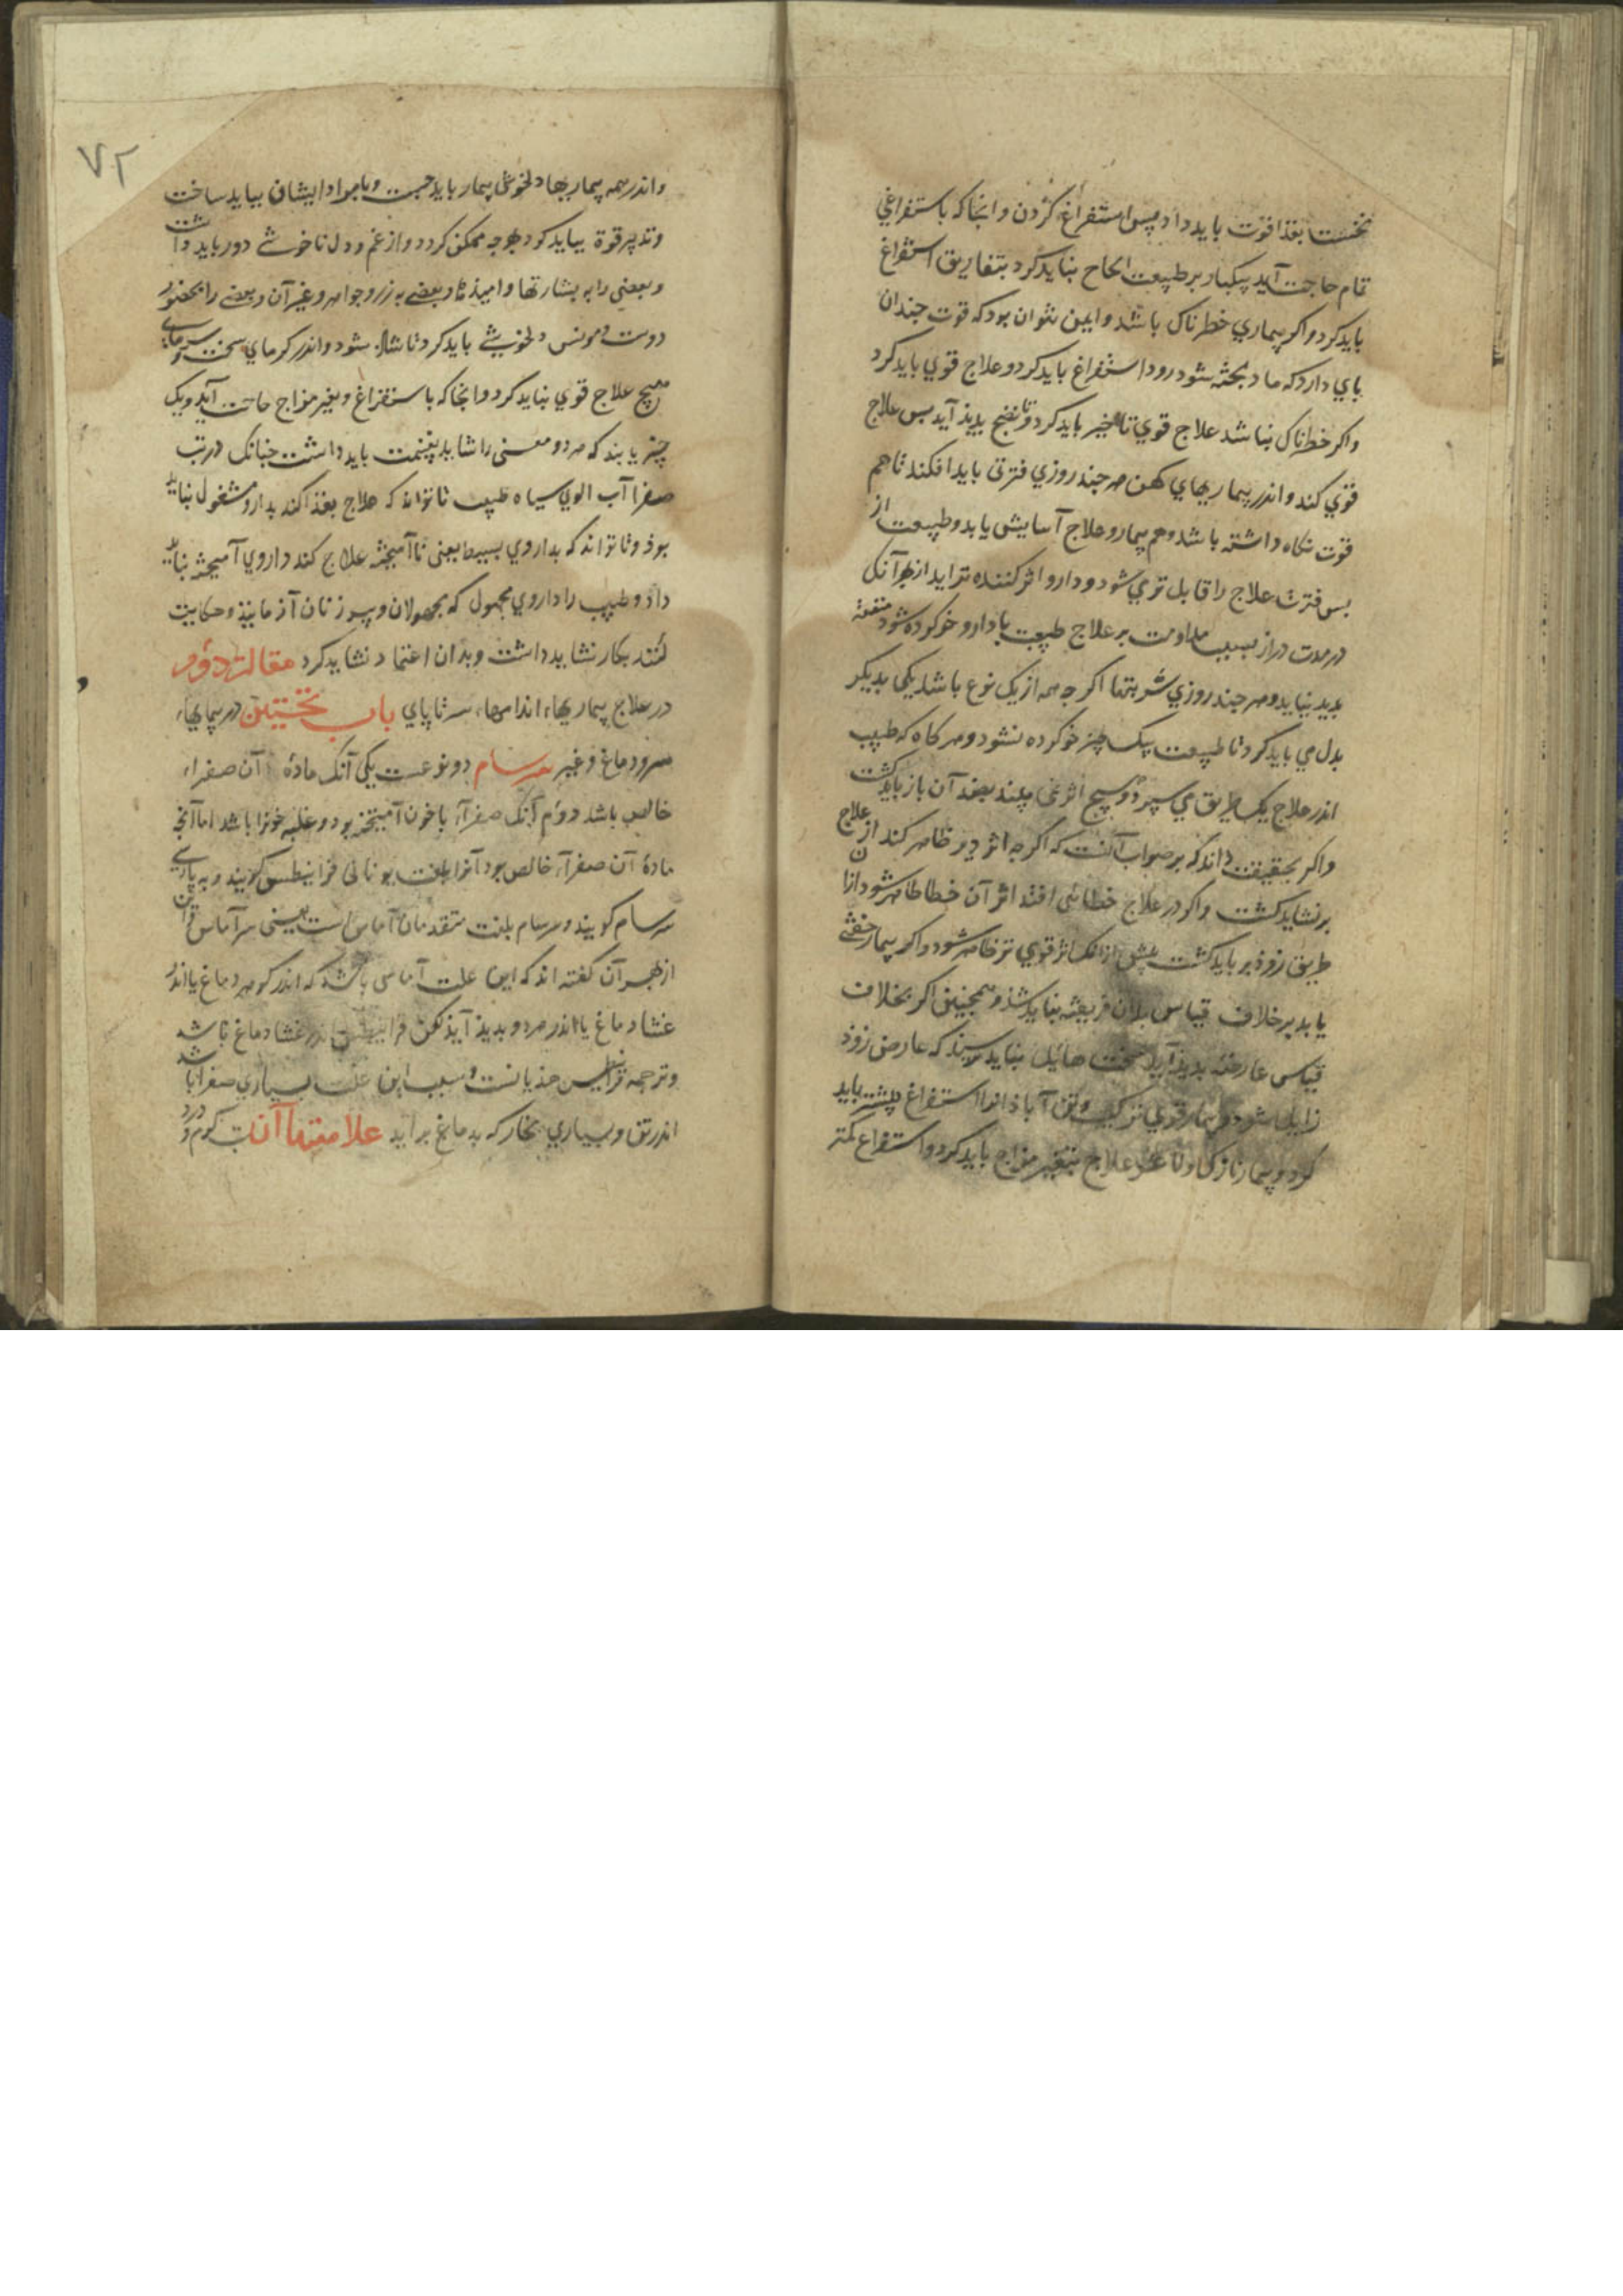 نخست بغذا قوت باید داد و پس استفراغ کردن و انجا که باستفراغی
تمام حاجت آید بیکبار بر طبیعت الحاح نباید کرد بتفاریق استفراغ
باید کرد و اکر بیماری خطرناک باشد و ایمن نتوان بود که قوت جندان
بای دارد که ماده بخته شود زود استفراغ باید کرد و علاج قوی باید کرد
و اکر خطرناک نباشد علاج قوی تاخیر باید کرد تا نضج بدیذ آید بس علاج
قوی کند و اندر بیماریهای کهن هر جند روزی فترتی باید افکند تا هم
قوت نکاه داشته باشد و هم بیمار و علاج آسایش یابد و طبیعت از
بس فترت علاج را قابل تر می شود و دارو اثر کننده تر اید از بهر آنک
در مدت دراز بسبب مداومت بر علاج طبیعت با دارو خو کرده شود منفعت
بدید نیاید و هر جند روزی شربتها اکر جه همه از یک نوع باشد یکی بدیکر
بدل می باید کرد تا طبیعت بیک چیز خو کرده نشود و هر کاه که طبیب
اندر علاج یک طریق می سپرد و هیچ اثر نمی بیند بعد آن باز باید کشت
و اکر بحقیقت داند که بر صواب آنست که اکر جه اثر دیر ظاهر کند از علاج
برنشاید کشت و اکر در علاج خطائی افتد اثر آن خطا ظاهر شود ازان
طریق زوذ بر باید کشت پیش از انک اثر قوی تر ظاهر شود و اکر بیمار خفتی
یابد بر خلاف قیاس بدان فریفته نباید شذ و همچنین اکر بخلاف
قیاس عارضه بدیذ آید سخت هایل نباید ترسید که عارض زوذ
زایل شود و بیمار قوی ترکیب و تن آباذانرا استفراغ بیشتر باید
کرد و بیمار نازک را علاج بتغییر مزاج باید کرد و استفراغ کمتر
۷۲
و اندر همه بیماریها دلخوشی بیمار باید جست و با مراد ایشان بباید ساخت
و تدبیر قوة بباید کرد بهر جه ممکن کردد و از غم و دل ناخوشی دور باید داشت
و بعضی را به بشارتها و امیذها و بعضی به زر و جواهر و غیر آن و بعضی را بحضور
دوست و مونس دلخوشی باید کرد تا شاد شود و اندر کرمای سخت و سرمای
هیچ علاج قوی نباید کرد و انجا که باستفراغ و بغیر مزاج حاجت آید و یک
چیز یابند که هر دو معنی را شاید بغنیمت باید داشت جنانک در تب
صفرا آب الوی سیاه طبیب تا تواند که علاج بغذا کند بدارو مشغول نباید
بوذ و تا تواند که بداروی بسیط یعنی ناآمیخته علاج کند داروی آمیخته نباید
داد و طبیب را داروی مجهول که مجهولان و پیر زنان آزمایند و حکایت
کنند بکار نشاید داشت و بدان اعتماد نشاید کرد مقالت دوم
در علاج بیماریهاء اندامها، سر تا پای باب نخستین در بیماریهاء
سر و دماغ و غیر سرسام دو نوعست یکی آنک مادۀ آن صفراء
خالص باشد دوم آنک صفراء با خون آمیخته بود و غلبه خونرا باشد اما آنج
مادۀ آن صفراء خالص بود آنرا بلغت یونانی فرانیطس کویند و به پارسی
سرسام کویند و سرسام بلغت متقدمان آماس است یعنی سر آماس
از بهر آن کفته اند که این علت آماسی باشد که اندر کوهر دماغ یا اندر
غشاء دماغ یا اندر هر دو بدید آید لکن فرانیطس اندر غشاء دماغ باشد
و ترجمه فرانیطس هذیانست و سبب این علت بسیاری صفرا باشد
اندر تن و بسیاری بخار که بدماغ بر آید علامتهاآن تب کرم و درد